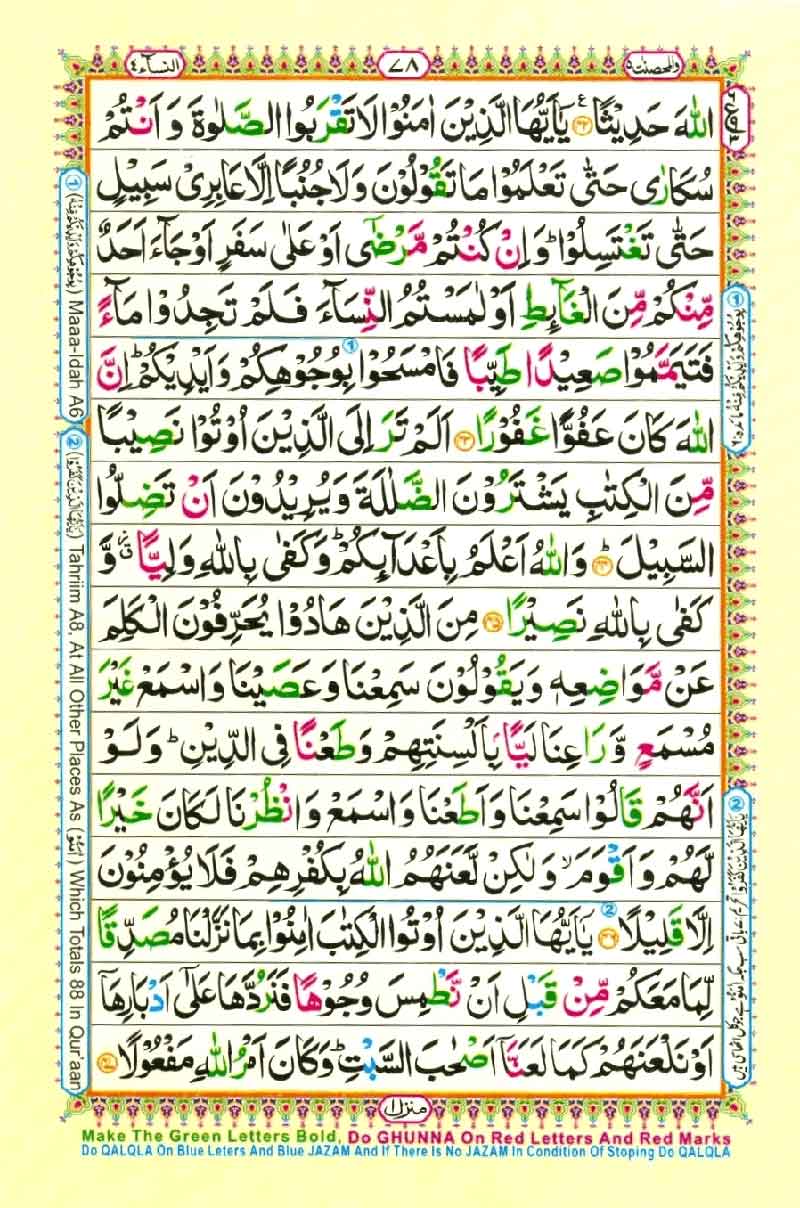 النساء ٤
٧٨
والمحصنت ٥
اللهَ حَدِيْثًا ﴿٤٢﴾ يٰۤاَيُّهَا الَّذِيْنَ اٰمَنُوْا لَا تَقْرَبُوا الصَّلٰوةَ وَ اَنْتُمْ
سُكَارٰى حَتّٰى تَعْلَمُوْا مَا تَقُوْلُوْنَ وَلَا جُنُبًا اِلَّا عَابِرِىْ سَبِيْلٍ
حَتّٰى تَغْتَسِلُوْا ؕ وَاِنْ كُنْتُمْ مَّرْضٰۤى اَوْ عَلٰى سَفَرٍ اَوْ جَآءَ اَحَدٌ
مِّنْكُمْ مِّنَ الْغَآئِطِ اَوْ لٰمَسْتُمُ النِّسَآءَ فَلَمْ تَجِدُوْا مَآءً
فَتَيَمَّمُوْا صَعِيْدًا طَيِّبًا فَامْسَحُوْا بِوُجُوْهِكُمْ وَاَيْدِيْكُمْ ؕ اِنَّ
اللهَ كَانَ عَفُوًّا غَفُوْرًا ﴿٤٣﴾ اَلَمْ تَرَ اِلَى الَّذِيْنَ اُوْتُوْا نَصِيْبًا
مِّنَ الْكِتٰبِ يَشْتَرُوْنَ الضَّلٰلَةَ وَيُرِيْدُوْنَ اَنْ تَضِلُّوا
السَّبِيْلَ ؕ ﴿٤٤﴾ وَاللهُ اَعْلَمُ بِاَعْدَآئِكُمْ ؕ وَكَفٰى بِاللهِ وَلِيًّا ۗ وَّ
كَفٰى بِاللهِ نَصِيْرًا ﴿٤٥﴾ مِنَ الَّذِيْنَ هَادُوْا يُحَرِّفُوْنَ الْكَلِمَ
عَنْ مَّوَاضِعِهٖ وَيَقُوْلُوْنَ سَمِعْنَا وَعَصَيْنَا وَاسْمَعْ غَيْرَ
مُسْمَعٍ وَّرَاعِنَا لَيًّاۢ بِاَلْسِنَتِهِمْ وَطَعْنًا فِى الدِّيْنِ ؕ وَلَوْ
اَنَّهُمْ قَالُوْا سَمِعْنَا وَاَطَعْنَا وَاسْمَعْ وَانْظُرْنَا لَكَانَ خَيْرًا
لَّهُمْ وَاَقْوَمَ ۙ وَلٰكِنْ لَّعَنَهُمُ اللهُ بِكُفْرِهِمْ فَلَا يُؤْمِنُوْنَ
اِلَّا قَلِيْلًا ﴿٤٦﴾ يٰۤاَيُّهَا الَّذِيْنَ اُوْتُوا الْكِتٰبَ اٰمِنُوْا بِمَا نَزَّلْنَا مُصَدِّقًا
لِّمَا مَعَكُمْ مِّنْ قَبْلِ اَنْ نَّطْمِسَ وُجُوْهًا فَنَرُدَّهَا عَلٰۤى اَدْبَارِهَاۤ
اَوْ نَلْعَنَهُمْ كَمَا لَعَنَّاۤ اَصْحٰبَ السَّبْتِ ؕ وَكَانَ اَمْرُ اللهِ مَفْعُوْلًا ﴿٤٧﴾
منزل ۱
① (بوجوهكم وايديكم منه) Maaa-Idah A6
② (يايها الذين كفروا) Tahriim A8, At All Other Places As (امنوا) Which Totals 88 In Qur'aan
Make The Green Letters Bold, Do GHUNNA On Red Letters And Red Marks
Do QALQLA On Blue Leters And Blue JAZAM And If There Is No JAZAM In Condition Of Stoping Do QALQLA